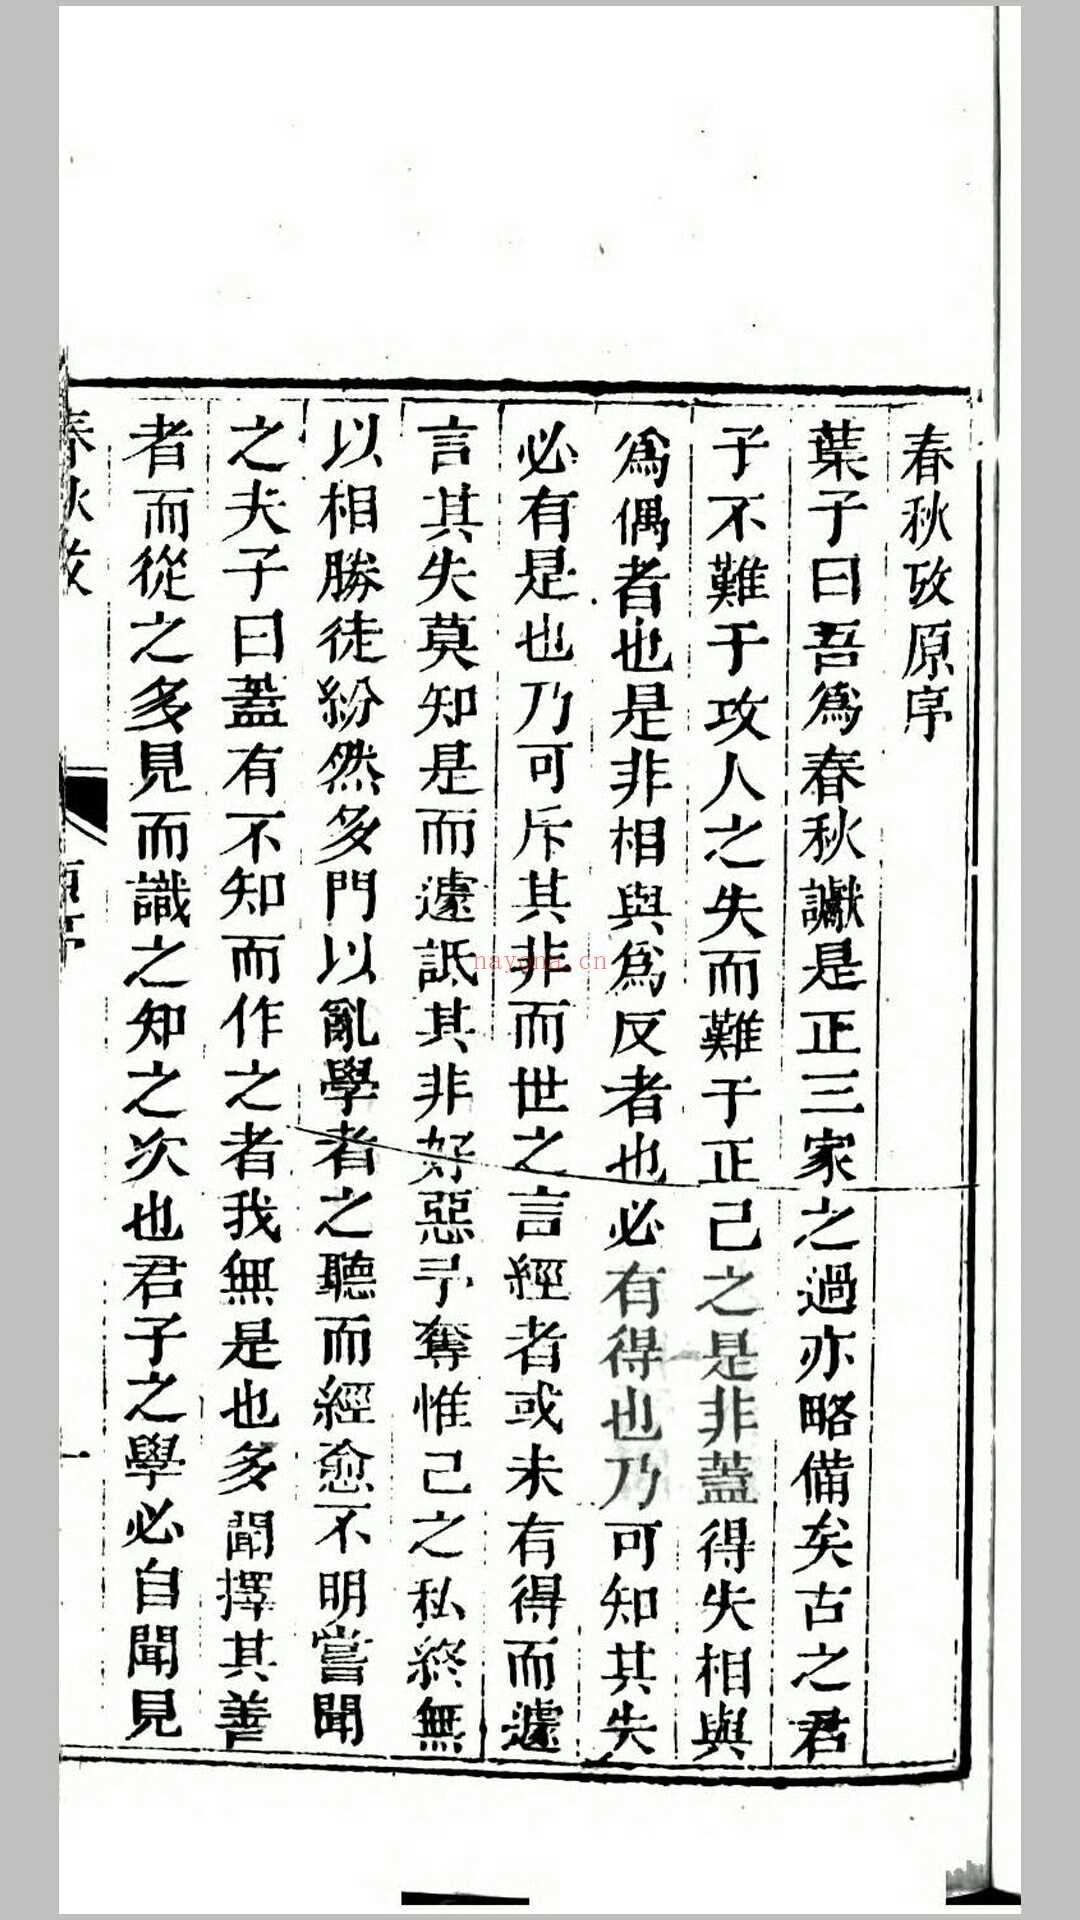 春秋攷原序
葉子曰吾爲春秋讞是正三家之過亦略備矣古之君
子不難于攻人之失而難于正己之是非蓋得失相與
爲偶者也是非相與爲反者也必有得也乃可知其失
必有是也乃可斥其非而世之言經者或未有得而遽
言其失莫知是而遽詆其非好惡予奪惟己之私終無
以相勝徒紛然多門以亂學者之聽而經愈不明嘗聞
之夫子曰蓋有不知而作之者我無是也多聞擇其善
者而從之多見而識之知之次也君子之學必自聞見
春秋攷
原序
一
nayona.cn